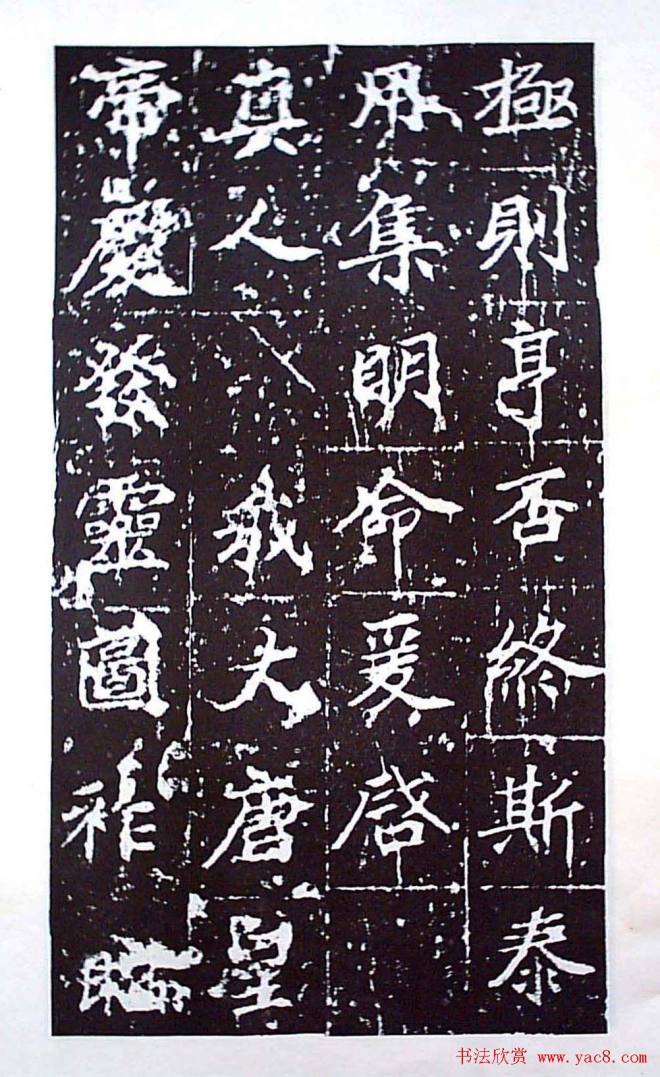 極則亨否終斯泰
用集明命爰啓
真人我大唐皇
帝慶發靈圖祚
书法欣赏 www.yac8.com